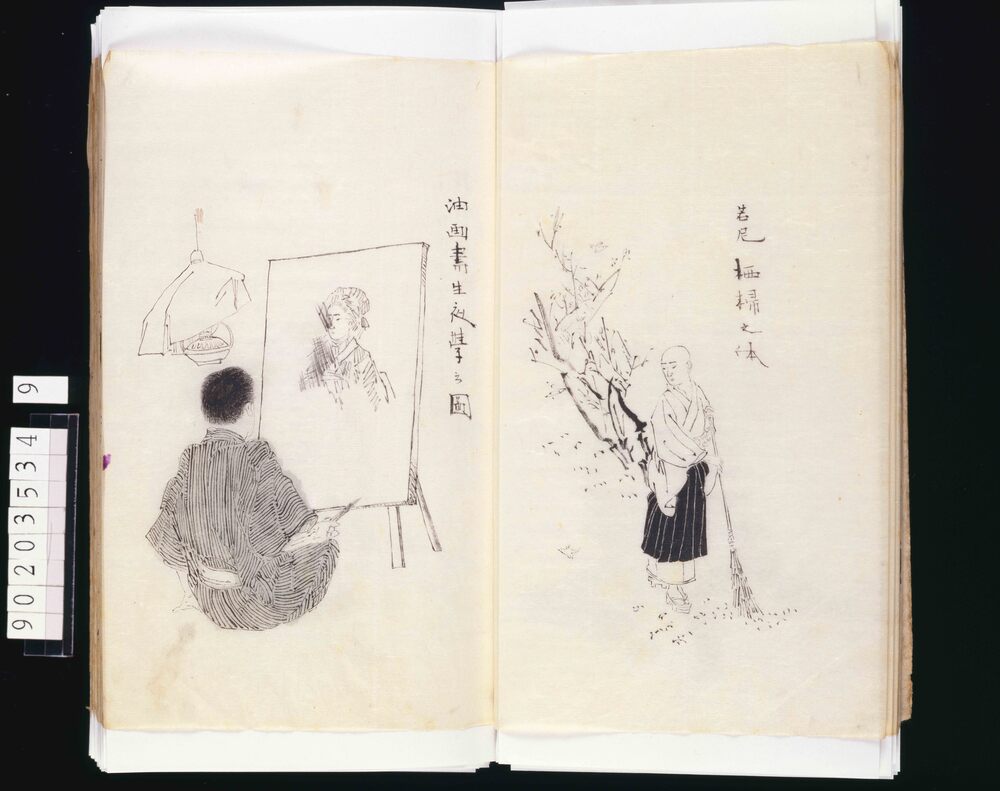 若尼 栖掃之体
油画書生夜学之圖
90203534 9